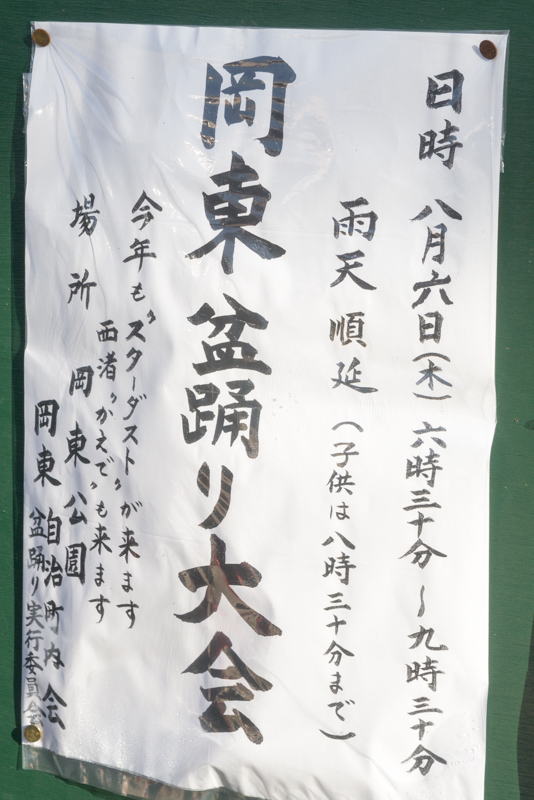 日時 八月六日(木) 六時三十分〜九時三十分
雨天順延 (子供は八時三十分まで)
岡東盆踊り大会
今年も〝スターダスト〟が来ます
西渚〝かえで〟も来ます
場所 岡東公園
岡東自治町内会
盆踊り実行委員会